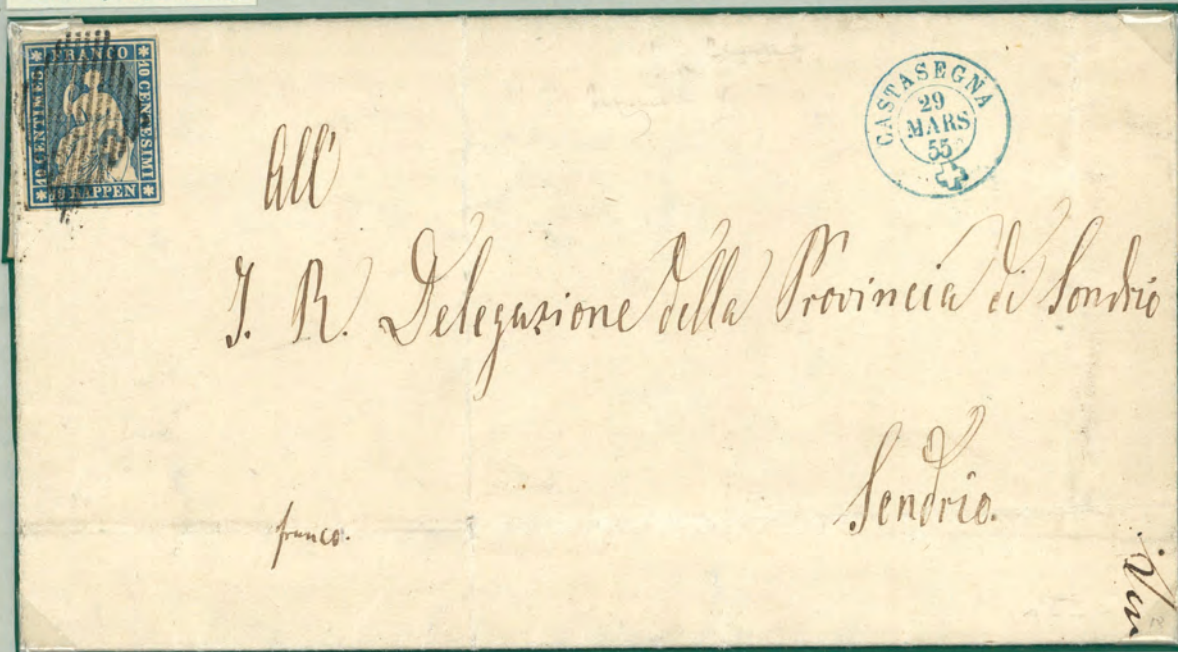 FRANCO
10 CENTIMES
10 CENTESIMI
10 RAPPEN
CASTASEGNA
29
MARS
55
All'
I. R. Delegazione della Provincia di Sondrio
Sondrio.
franco.